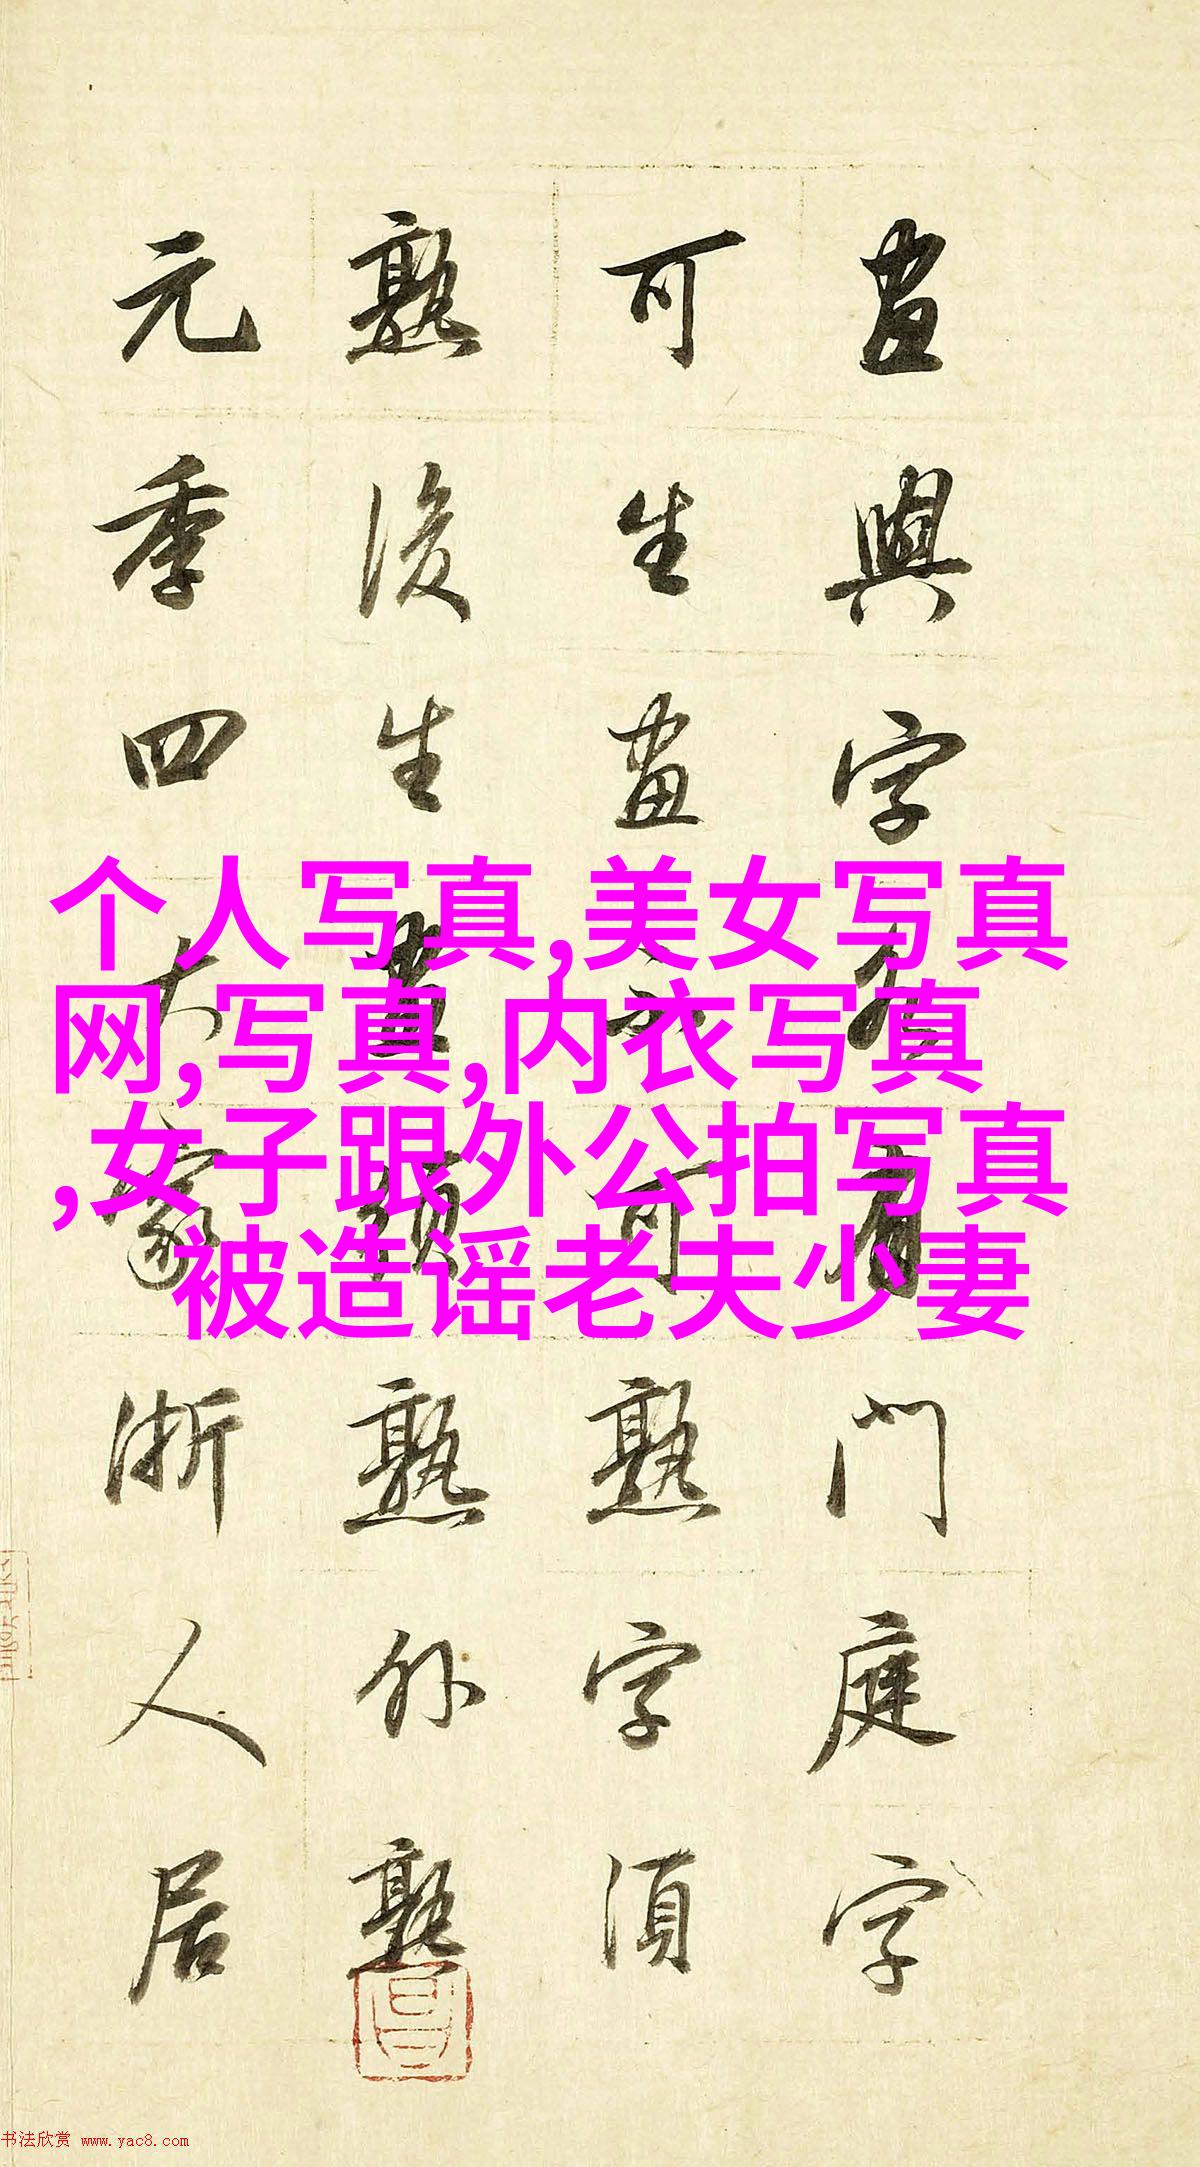 畫與字各有門庭字
可生畫不可熟字須
熟後生畫須熟外熟
元季四大家浙人居
个人写真,美女写真
网,写真,内衣写真
,女子跟外公拍写真
被造谣老夫少妻
书法欣赏 www.yac8.com